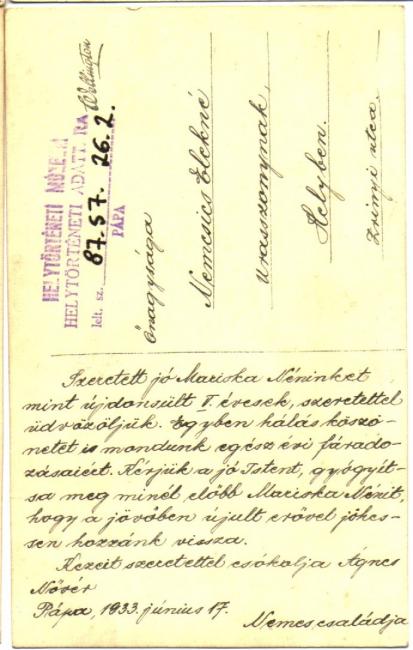 HELYTÖRTÉNETI MÚZEUM
HELYTÖRTÉNETI ADATTÁRA
lelt. sz. 87.57.26.2.
PÁPA
Wellington
Őnagysága
Nemcsics Elekné
Urasszonynak
Helyben.
Zrinyi utca.
Szeretett jó Mariska Néninket
mint újdonsült V. évesek, szeretettel
üdvözöljük. Egyben hálás köszö-
netet is mondunk egész évi fárado-
zásaiért. Kérjük a jó Istent, gyógyít-
sa meg minél előbb Mariska Nénit,
hogy a jövőben újult erővel jöhes-
sen hozzánk vissza.
Kezeit szeretettel csókolja Ágnes
Nővér
Pápa, 1933. június 17.
Nemes, családja